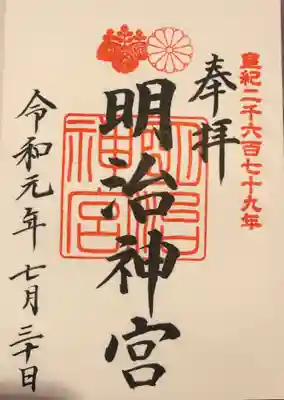 皇紀二千六百七十九年
奉拝
明治神宮
明治神宮
令和元年 七月三十日